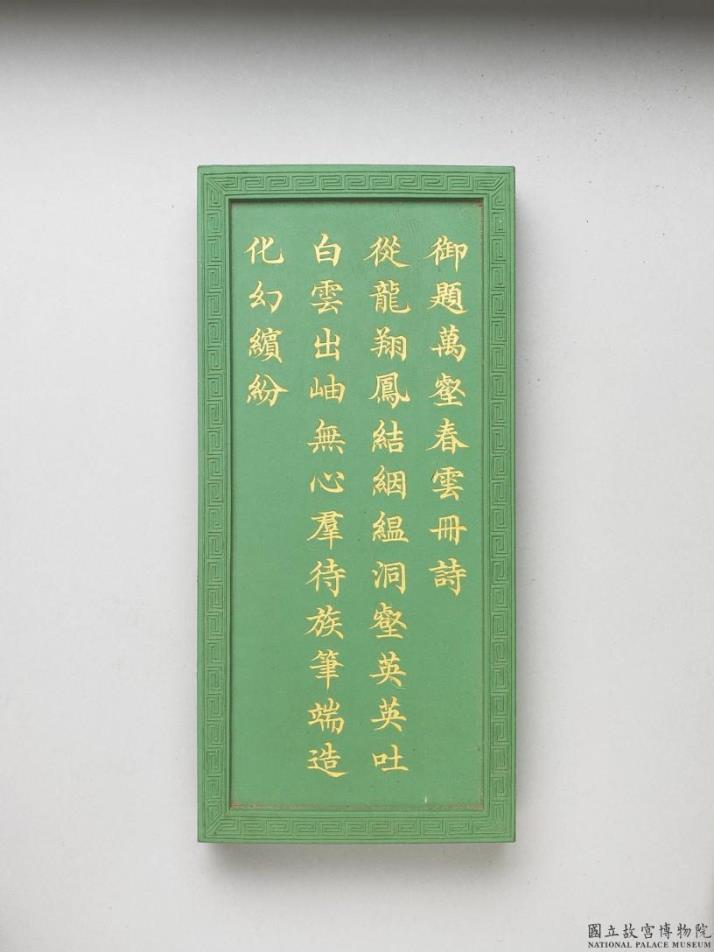 御題萬壑春雲冊詩
從龍翔鳳結絪縕洞壑英英吐
白雲出岫無心羣待族筆端造
化幻繽紛
國立故宮博物院
NATIONAL PALACE MUSEUM